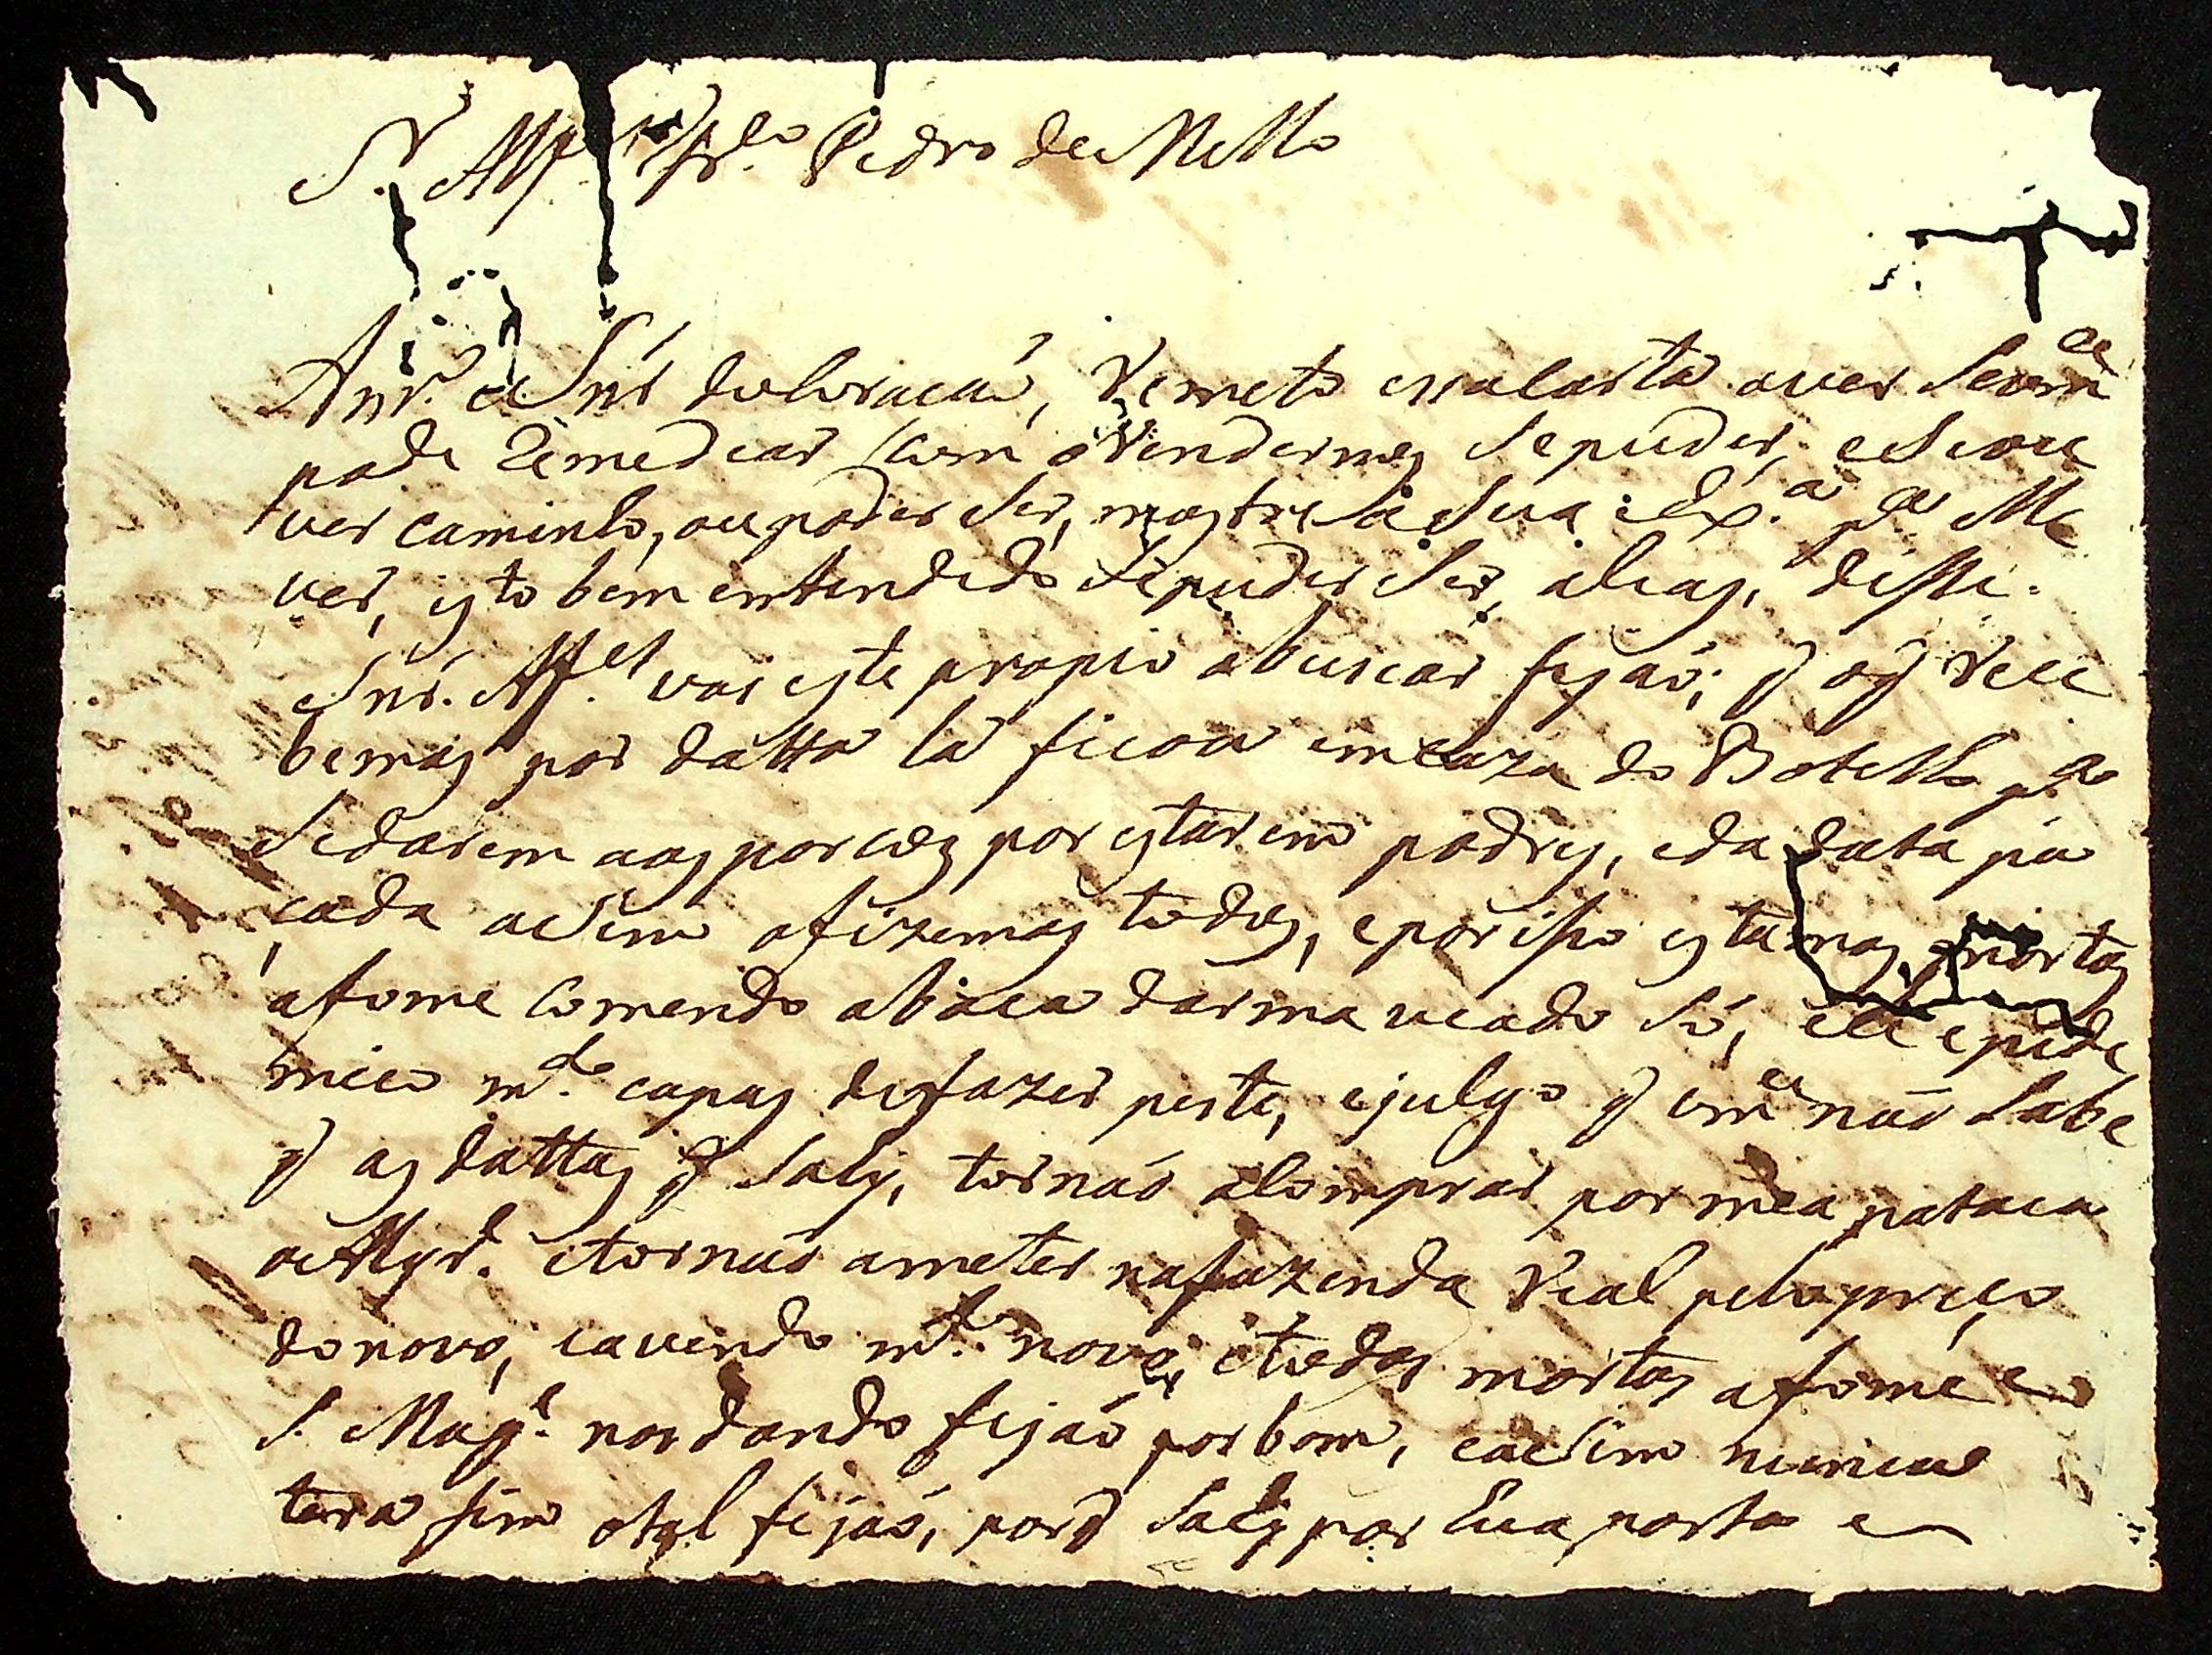 S.r Alf.es Pedro de Mello
Snr' do Coraçaó, Remeto essa Carta a ver Se vm.ce
pode Remedear com o Rendermos Se puder, e Se ou
ver caminho, ou poder Ser, mostre a Sua Ex.a p.a Me
ver, isto bem emtendido Se puder Ser, alias, disse.
Snr. Alf.es vai este propio a buscar fejaó; q̃ o q̃ Rece
bemos por datta lá ficou em Caza do Botelho p.a
Se darem aos porcos por estarem podres, e da data pa
cada aSim o fizemos todos, e por isso estamos mortos
a fome Comendo a vaca Só, e epide
mico m.to capas de fazer peste, e julgo q̃ vm.ce naó Sabe
q̃ as dattas q̃ Sahy, tornaó a Comprar por mea pataca
o Alqr.e e tornaó a meter na fazenda Real pelo preço
do novo, e avendo m.to novo, e todos mortos a fome e
S. Mag.e nos dando fejaó por bom, e aSim nunca
tera fim o tal fejaó, porq̃ Sahy por hua porta e